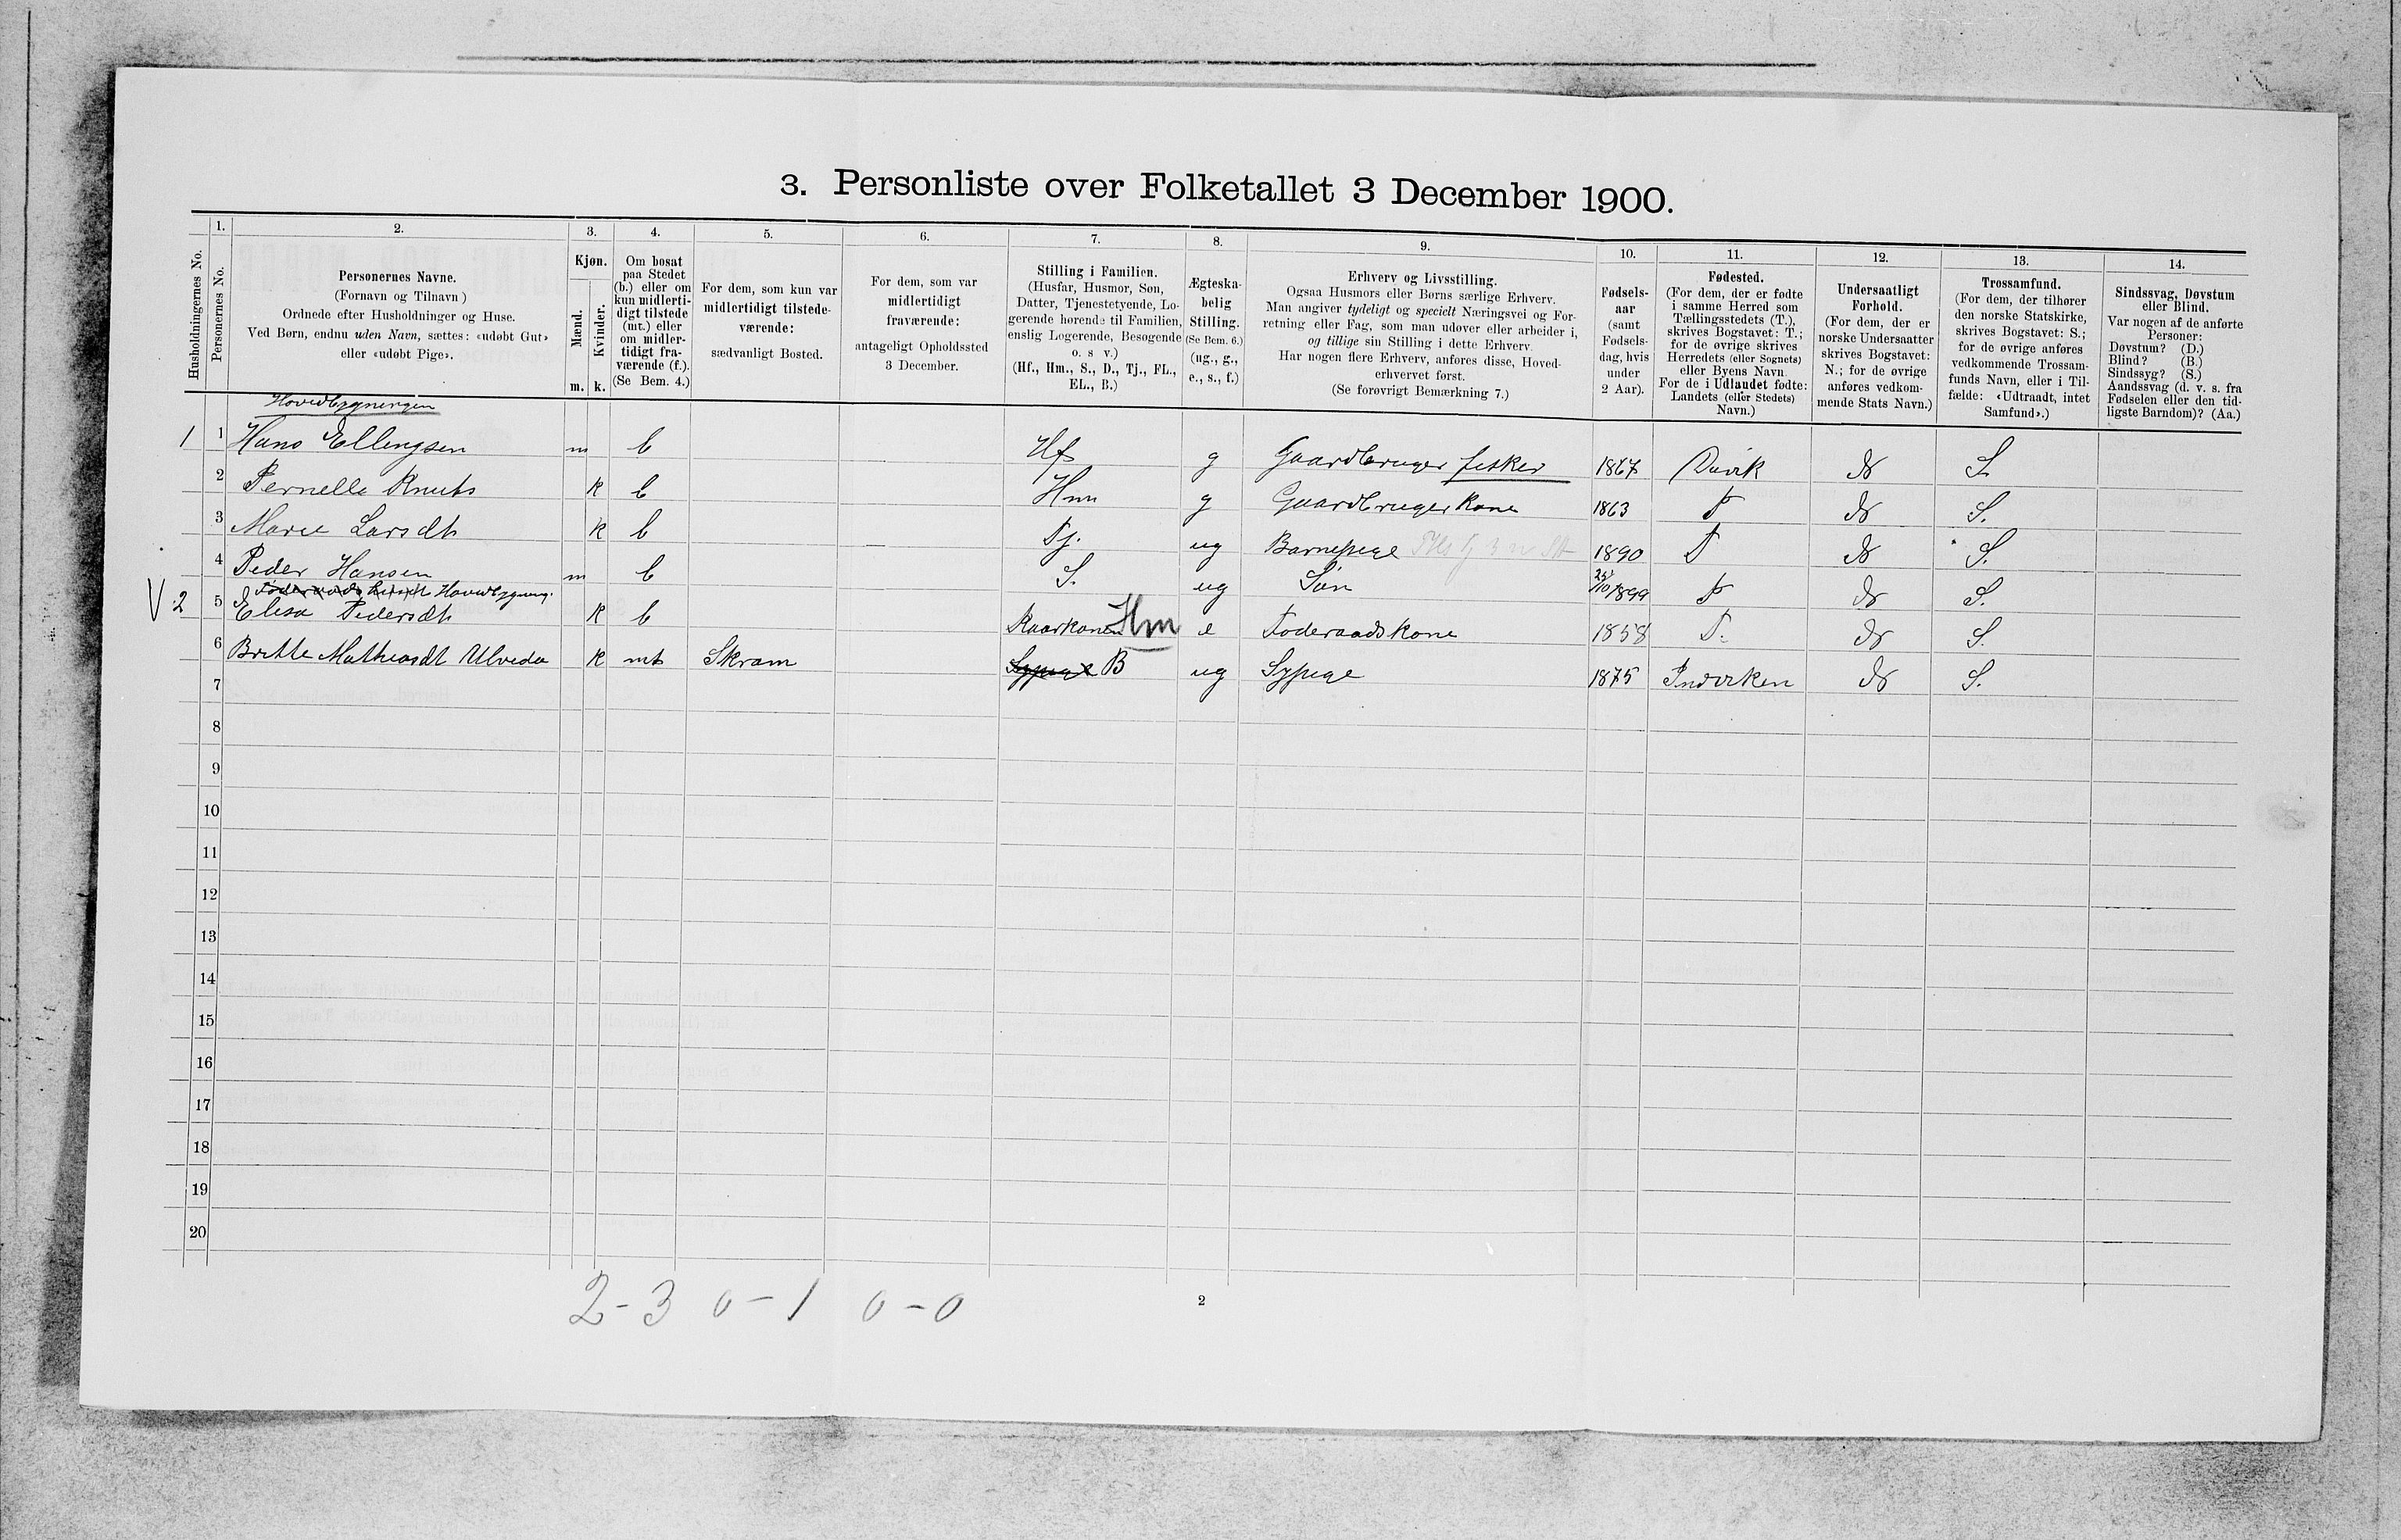 3. Personliste over Folketallet 3 December 1900.
1. 2. 3. 4. 5. 6. 7. 8. 9. 10. 11. 12. 13. 14.
Husholdningernes No.
Personernes No.
Personernes Navne.
(Fornavn og Tilnavn )
Ordnede efter Husholdninger og Huse.
Ved Børn, endnu uden Navn, sættes: «udøbt Gut»
eller «udøbt Pige».
Kjøn.
Mænd.
Kvinder.
m. k.
Om bosat
paa Stedet
(b.) eller om
kun midlerti-
digt tilstede
(mt.) eller
om midler-
tidigt fra-
værende (f.).
(Se Bem. 4.)
For dem, som kun var
midlertidigt tilstede-
værende:
sædvanligt Bosted.
For dem, som var
midlertidigt
fraværende:
antageligt Opholdssted
3 December.
Stilling i Familien.
(Husfar, Husmor, Søn,
Datter, Tjenestetyende, Lo-
gerende hørende til Familien,
enslig Logerende, Besøgende
o. s v.)
(Hf., Hm., S., D., Tj., FL.,
EL., B.)
Ægteska-
belig
Stilling.
(Se Bem. 6.)
(ug., g.,
e., s., f.)
Erhverv og Livsstilling.
Ogsaa Husmors eller Børns særlige Erhverv.
Man angiver tydeligt og specielt Næringsvei og For-
retning eller Fag, som man udøver eller arbeider i,
og tillige sin Stilling i dette Erhverv.
Har nogen flere Erhverv, anføres disse, Hoved-
erhvervet først.
(Se forøvrigt Bemærkning 7.)
Fødsels-
aar
(samt
Fødsels-
dag, hvis
under
2 Aar).
Fødested.
(For dem, der er fødte
i samme Herred som
Tællingsstedets (T.),
skrives Bogstavet: T.;
for de øvrige skrives
Herredets (eller Sognets)
eller Byens Navn.
For de i Udlandet fødte:
Landets (eller Stedets)
Navn.)
Undersaatligt
Forhold.
(For dem, der er
norske Undersaatter
skrives Bogstavet:
N.; for de øvrige
anføres vedkom-
mende Stats Navn.)
Trossamfund.
(For dem, der tilhører
den norske Statskirke,
skrives Bogstavet: S.;
for de øvrige anføres
vedkommende Trossam-
funds Navn, eller i Til-
fælde: «Udtraadt, intet
Samfund».)
Sindssvag, Døvstum
eller Blind.
Var nogen af de anførte
Personer:
Døvstum? (D.)
Blind? (B.)
Sindssyg? (S.)
Aandssvag (d. v. s. fra
Fødselen eller den tid-
ligste Barndom)? (Aa.)
Hovedbygningen
1 1 Hans Ellingsen m b Hf g Gaardbruger fisker 1867 Davik N S
2 Pernelle Knuts k b Hm g Gaardbrugerkone 1863 T N S.
3 Marie Larsdt k b Tj. ug Barnepige 1890 T N S.
4 Peder Hansen m b S. ug Søn 25/10 1899 T N S.
Hovedbygning.
V 2 5 Elisa Pedersdt k b Kaarkone Hm e Foderaadskone 1858 T. N S.
6 Britte Mathiasdt Ulvedal k mt Skram Sypige B ug Sypige 1875 Indviken N S.
7
8
9
10
11
12
13
14
15
16
17
18
19
20
2 - 3 0 - 1 0 - 0
2